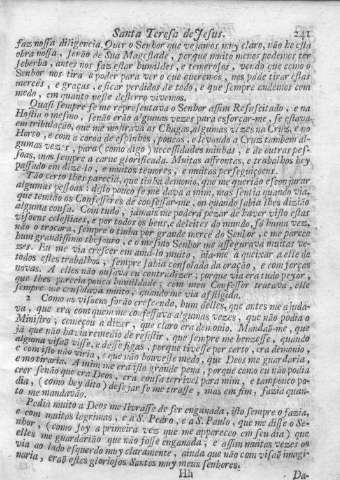 Santa Teresa de Jesus. 241
faz nossa diligencia. Quer o Senhor que vejamos muy claro, não he esta
obra nossa, senão de Sua Magestade, porque muito menos podemos ter
soberba, antes nos faz estar humildes, e temerosos, vendo que como o
Senhor nos tira a poder para ver o que queremos, nos póde tirar estas
mercês, e graças, e ficar perdidos de todo, e que sempre andemos com
medo, em quanto neste desterro vivemos.
Quasi sempre se me representava o Senhor assim Resuscitado, e na
Hostia o mesmo, senão erão algumas vezes para esforçar-me, se estava
em tribulação, que me mostrava as Chagas, algumas vezes na Cruz, e no
Horto, e com a coroa de espinhos, poucas, e levando a Cruz tambem al-
gumas vezes, para (como digo) necessidades minhas, e de outras pes-
soas, mas sempre a carne glorificada. Muitas affrontas, e trabalhos hey
passado em dizelo, e muitos temores, e muitas perseguiçoens.
Tão certo lhes parecia, que tinha demonio, que me querião esconjurar
algumas pessoas: disto pouco se me dava a mim, mas sentia quando via,
que temião os Confessores de confessar-me, ou quando sabia lhes dizião
alguma cousa. Com tudo, jamais me poderá pezar de haver visto estas
visoens celestiaes, e por todos os bens, e deleites do mundo, só huma vez,
não o trocara, sempre o tinha por grande mercê do Senhor, e me parece
hum grandissimo thesouro, e o mesmo Senhor me assegurava muitas ve-
zes. Eu me via crescer em amalo muito, hia-me a queixar a elle de
todos estes trabalhos, sempre sahia consolada da oração, e com forças
novas. A elles não ousava eu contradizer, porque via era tudo peyor,
que lhes parecia pouca humildade; com meu Confessor tratava, elle
sempre me consolava muito, quando me via affligida.
2 Como as visoens forão crescendo, hum delles, que antes me ajuda-
va, que era com quem me confessava algumas vezes, que não podia o
Ministro, começou a dizer, que claro era demonio. Mandão-me, que
já que não havia remedio de resistir, que sempre me benzesse, quando
alguma visão visse, e desse figas, porque tivesse por certo, era demonio,
e com isto não viria, e que não houvesse medo, que Deos me guardaria,
e mo tiraria. A mim me era isto grande pena, porque como eu não podia
crer senão que era Deos, era cousa terrivel para mim, e tampouco po-
dia, (como hey dito) desejar se me tirasse, mas em fim, fazia quan-
to me mandavão.
Pedia muito a Deos me livrasse de ser enganada, isto sempre o fazia,
e com muitas lagrimas, e a S. Pedro, e a S. Paulo, que me disse o Se-
nhor, (como foy a primeira vez que me appareceo em seu dia) que
elles me guardarião que não fosse enganada, e assim muitas vezes os
via ao lado esquerdo muy claramente, ainda que não com visão imagi-
naria, erão estes gloriosos Santos muy meus senhores.
Hh Da-